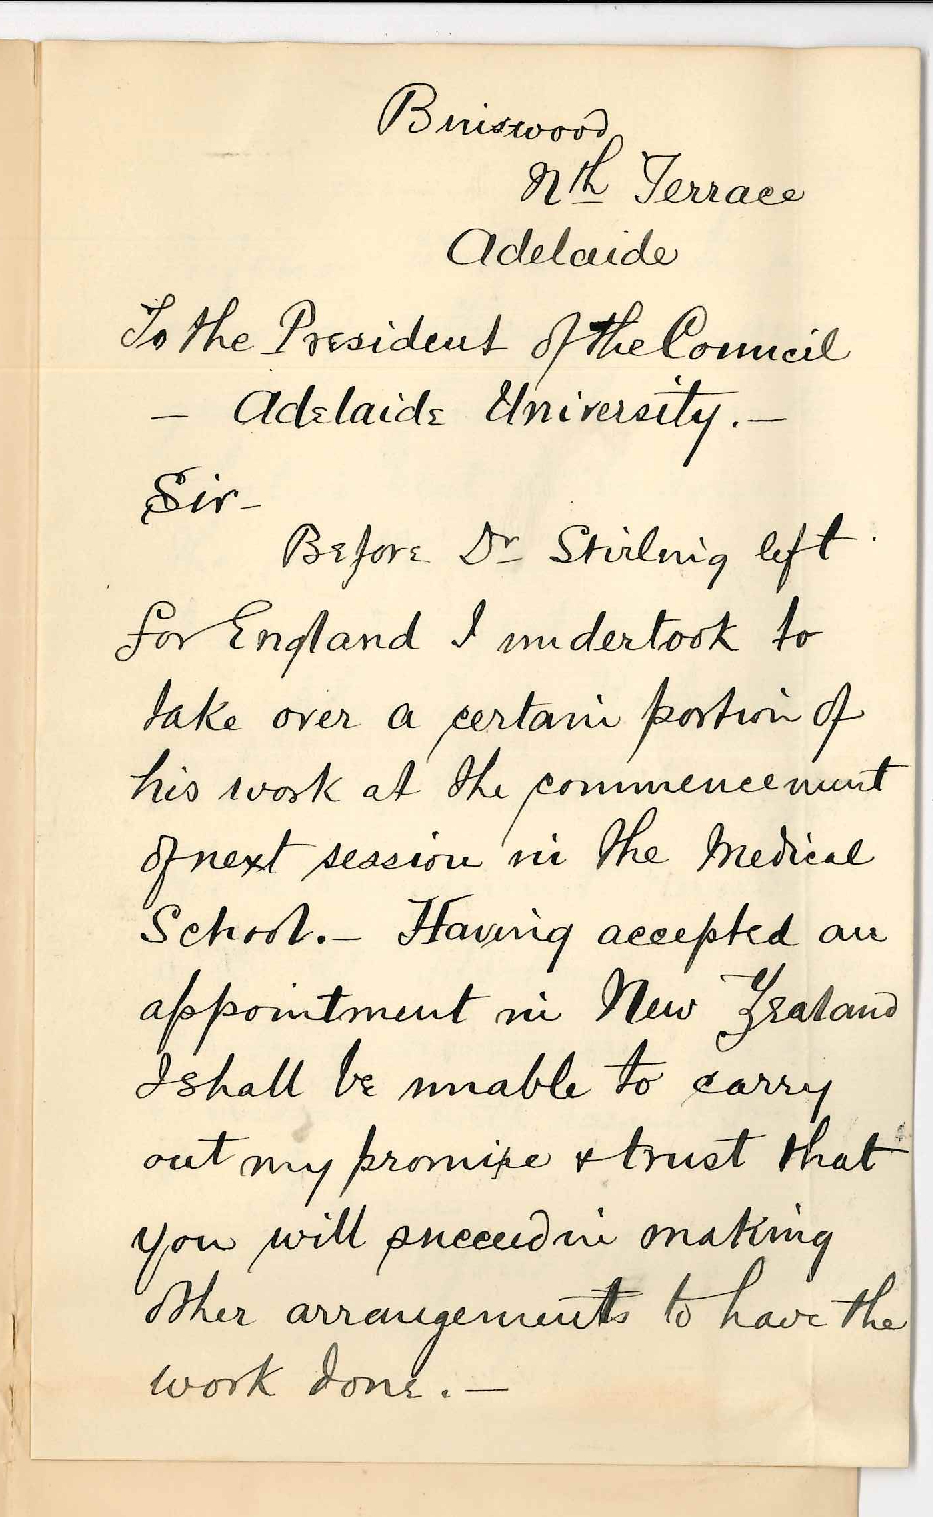 Briiswood
Nth Terrace
Adelaide
To the President of the Council
— Adelaide University. —
Sir —
Before Dr Stirling left
for England I undertook to
take over a certain portion of
his work at the commencement
of next session in the Medical
School. — Having accepted an
appointment in New Zealand
I shall be unable to carry
out my promise & trust that
you will succeed in making
other arrangements to have the
work done. —